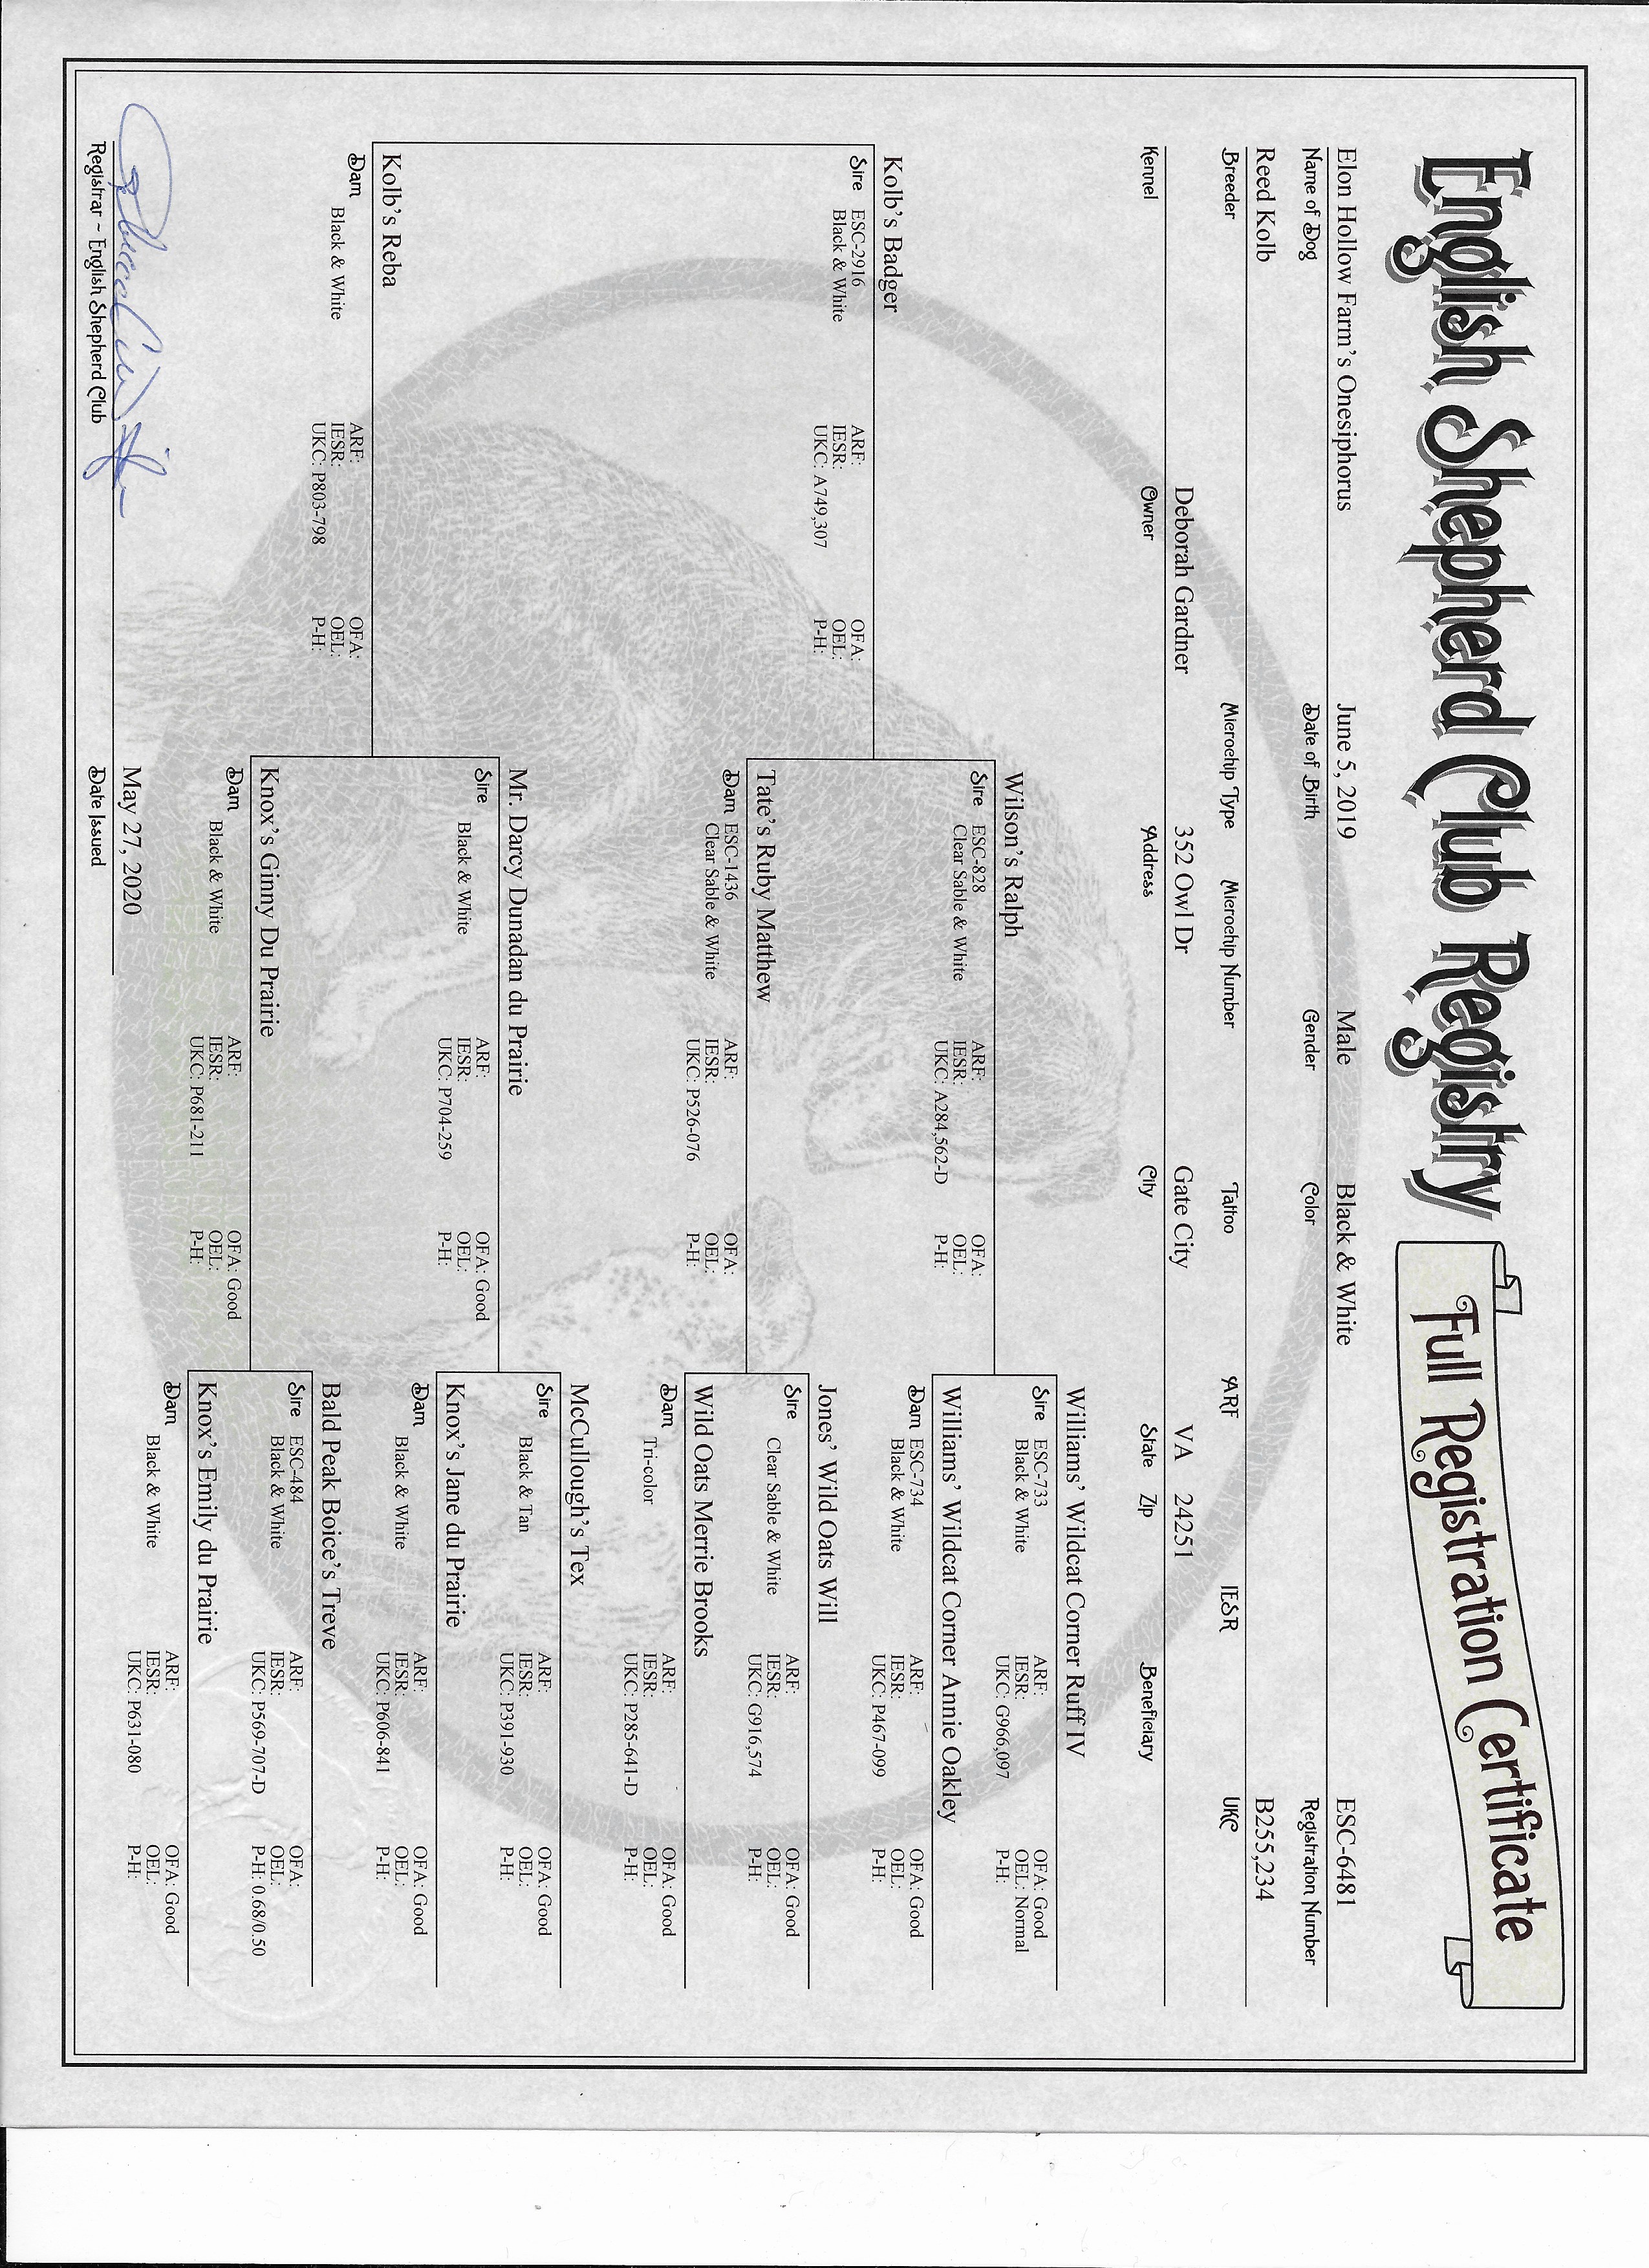 English Shepherd Club Registry
Full Registration Certificate
Elon Hollow Farm's Onesiphorus June 5, 2019 Male Black & White ESC-6481
Name of Dog Date of Birth Gender Color Registration Number
Reed Kolb B255,234
Breeder Microchip Type Microchip Number Tattoo ARF IESR UKC
Deborah Gardner 352 Owl Dr Gate City VA 24251
Kennel Owner Address City State Zip Beneficiary
Williams' Wildcat Corner Ruff IV
Sire ESC-733 ARF: OFA: Good
Black & White IESR: OEL: Normal
UKC: G966,097 P-H:
Wilson's Ralph
Sire ESC-828 ARF: OFA:
Clear Sable & White IESR: OEL:
UKC: A284,562-D P-H:
Williams' Wildcat Corner Annie Oakley
Dam ESC-734 ARF: OFA: Good
Black & White IESR: OEL:
UKC: P467-099 P-H:
Kolb's Badger
Sire ESC-2916 ARF: OFA:
Black & White IESR: OEL:
UKC: A749,307 P-H:
Jones' Wild Oats Will
Sire ARF: OFA: Good
Clear Sable & White IESR: OEL:
UKC: G916,574 P-H:
Tate's Ruby Matthew
Dam ESC-1436 ARF: OFA:
Clear Sable & White IESR: OEL:
UKC: P526-076 P-H:
Wild Oats Merrie Brooks
Dam ARF: OFA: Good
Tri-color IESR: OEL:
UKC: P285-641-D P-H:
McCullough's Tex
Sire ARF: OFA: Good
Black & Tan IESR: OEL:
UKC: P391-930 P-H:
Mr. Darcy Dunadan du Prairie
Sire ARF: OFA: Good
Black & White IESR: OEL:
UKC: P704-259 P-H:
Knox's Jane du Prairie
Dam ARF: OFA: Good
Black & White IESR: OEL:
UKC: P606-841 P-H:
Kolb's Reba
Dam ARF: OFA:
Black & White IESR: OEL:
UKC: P803-798 P-H:
Bald Peak Boice's Treve
Sire ESC-484 ARF: OFA:
Black & White IESR: OEL:
UKC: P569-707-D P-H: 0.68/0.50
Knox's Ginny Du Prairie
Dam ARF: OFA: Good
Black & White IESR: OEL:
UKC: P681-211 P-H:
Knox's Emily du Prairie
Dam ARF: OFA: Good
Black & White IESR: OEL:
UKC: P631-080 P-H:
May 27, 2020
Registrar ~ English Shepherd Club Date Issued